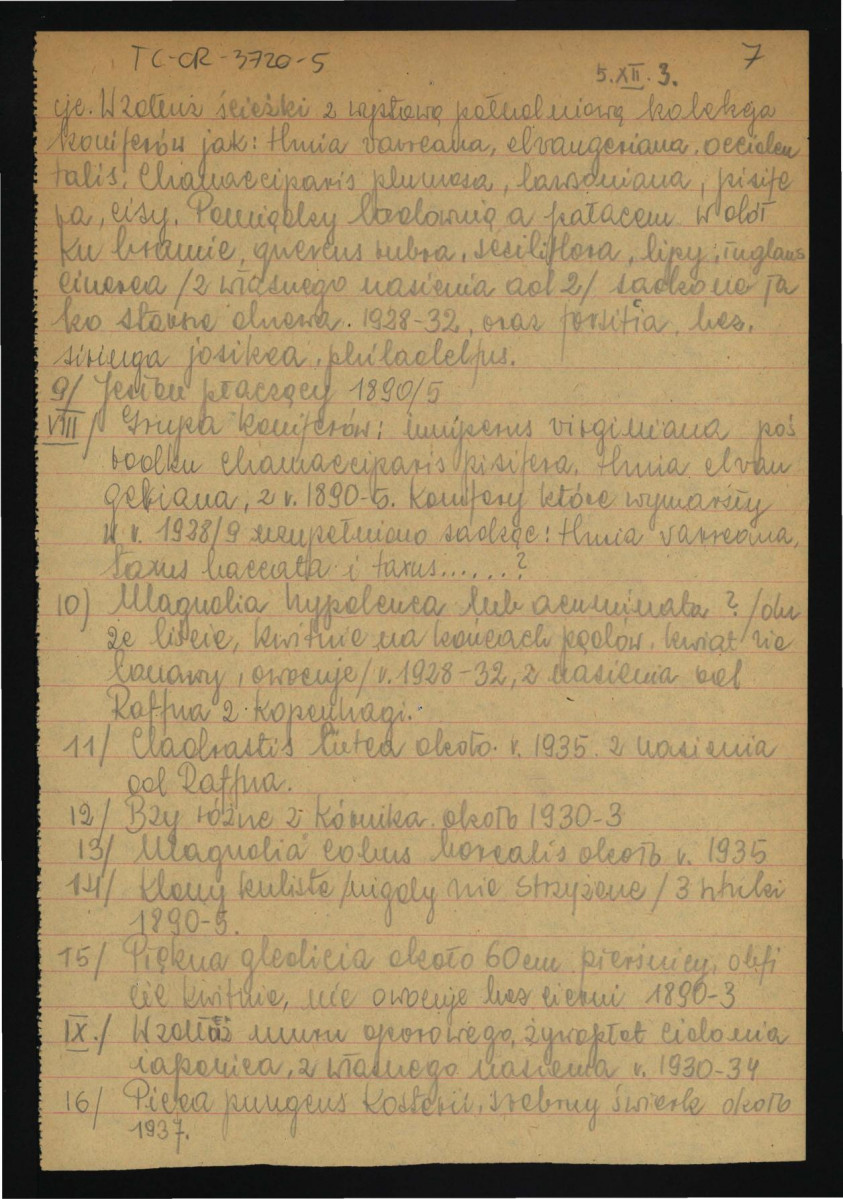 TC-OR-3720-5
5.XII.3.
7
cje. Wzdłuż ścieżki z wystawą południową kolekcja
koniferów jak: thuia vareana, elvangeriana, occiden
talis, Chamaeciparis plumosa, lawsoniana, pisife
ra, cisy. Pomiędzy lodownią a pałacem w dół
ku bramie, quercus rubra, sesiliflora, lipy, iuglans
cinerea /z własnego nasienia od 2/ sadzone ja
ko starsze drzewa. 1928-32, oraz forsitia, bez,
siringa josikea, philadelpus.
9/ Jesion płaczący 1890/5
VIII/ Grupa koniferów: iuniperus virginiana poś
rodku chamaeciparis pisifera, thuia elvan
geriana, z r. 1890-5. Konifery które wymarzły
w r. 1928/9 uzupełniono sadząc: thuia vareana,
taxus baccata i taxus......?
10) Magnolia hypoleuca lub acuminata ? /du
że liście, kwitnie na końcach pędów, kwiat zie
lonawy, owocuje/ r. 1928-32, z nasienia od
Raffna z Kopenhagi.
11/ Cladrastis lutea około r. 1935 z nasienia
od Raffna.
12/ Bzy różne z Kórnika około 1930-3
13/ Magnolia cobus borealis około r. 1935
14/ Klony kuliste /nigdy nie strzyżone/ 3 sztuki
1890-5.
15/ Piękna gledicia około 60cm pierśnicy, obfi
cie kwitnie, nie owocuje bez cierni 1890-3
IX./ Wzdłuż muru oporowego, żywopłot cidonia
iaponica, z własnego nasienia r. 1930-34
16/ Picea pungens Kosterii, srebrny świerk około
1937.